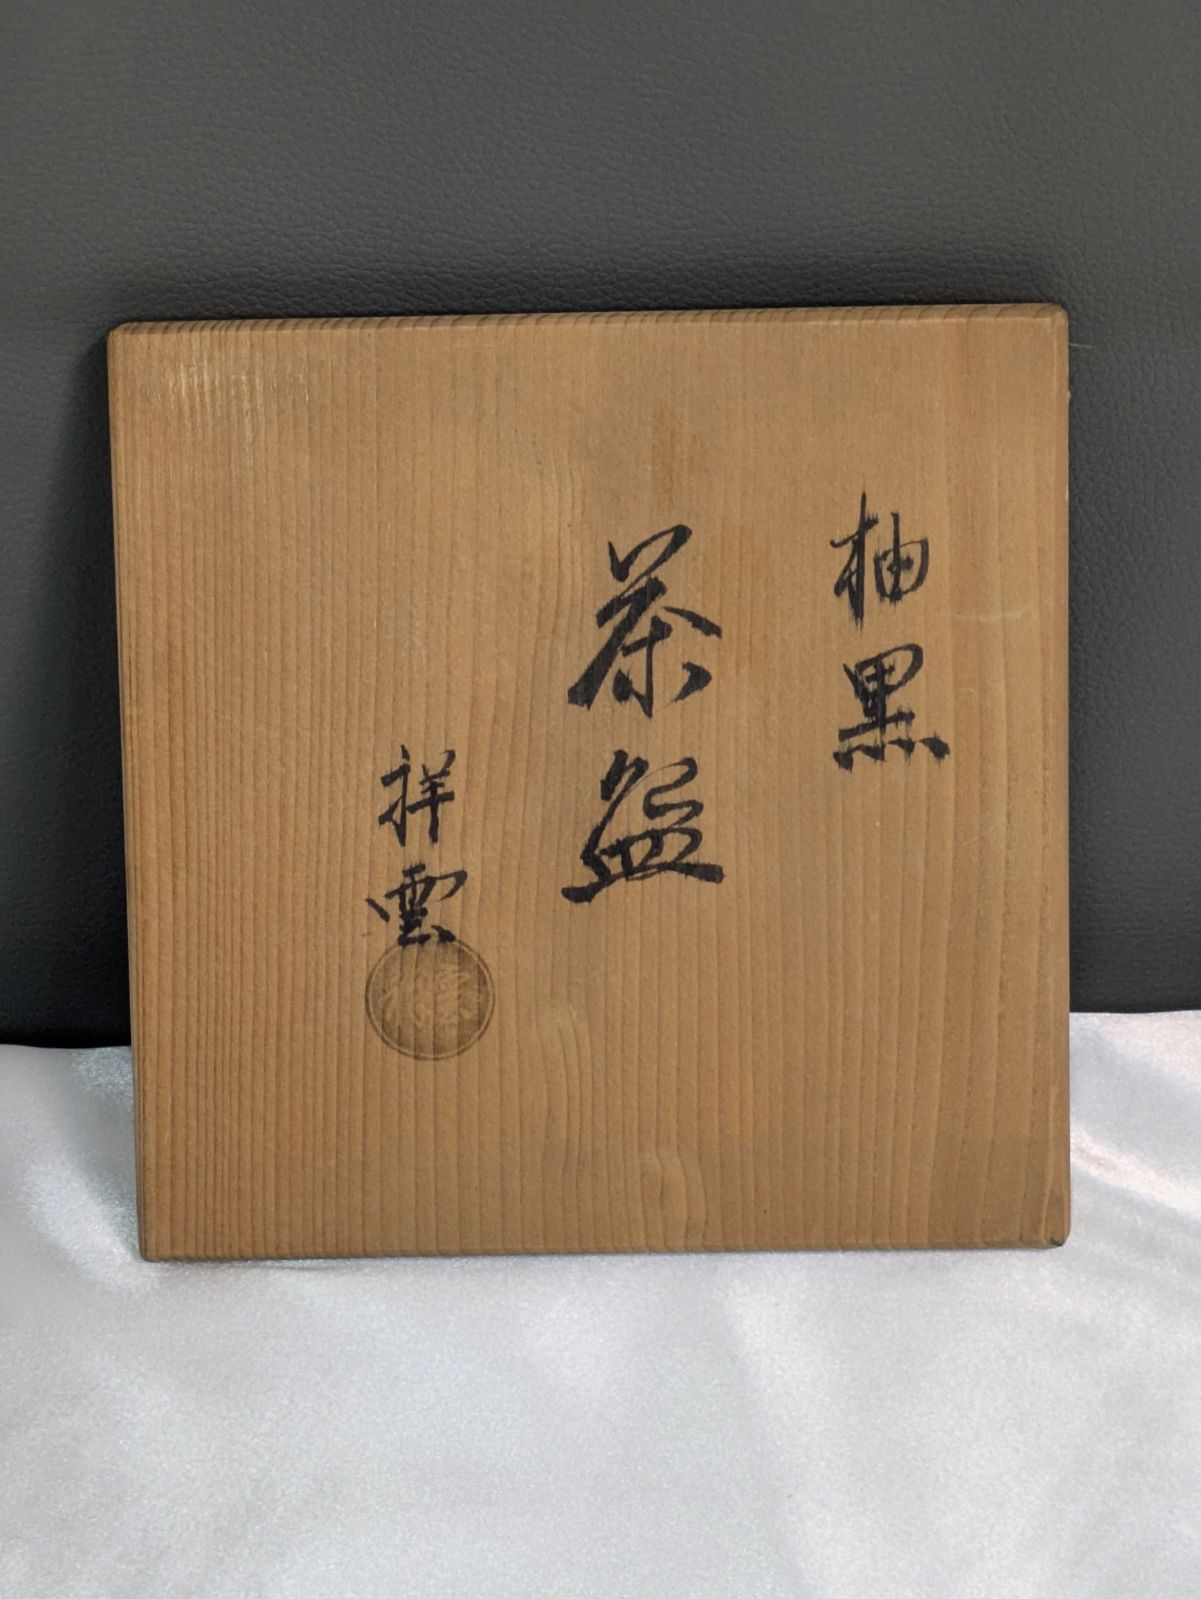 柚黒
茶盌
祥雲